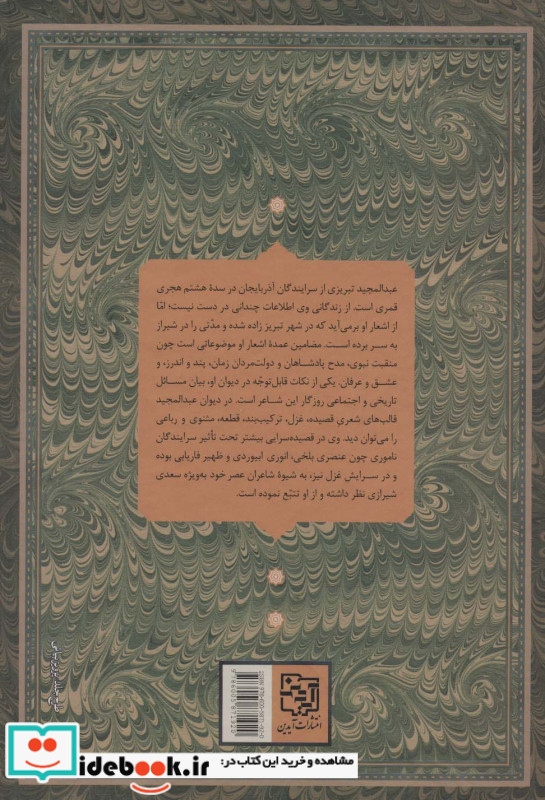 عبدالمجید تبریزی از سرایندگان آذربایجان در سدهٔ هشتم هجری
قمری است. از زندگانی وی اطلاعات چندانی در دست نیست؛ امّا
از اشعار او برمی‌آید که در شهر تبریز زاده شده و مدّتی را در شیراز
به سر برده است. مضامین عمدهٔ اشعار او موضوعاتی است چون
منقبت نبوی، مدح پادشاهان و دولت‌مردان زمان، پند و اندرز، و
عشق و عرفان. یکی از نکات قابل‌توجّه در دیوان او، بیان مسائل
تاریخی و اجتماعی روزگار این شاعر است. در دیوان عبدالمجید
قالب‌های شعریِ قصیده، غزل، ترکیب‌بند، قطعه، مثنوی و رباعی
را می‌توان دید. وی در قصیده‌سرایی بیشتر تحت تأثیر سرایندگان
ناموری چون عنصری بلخی، انوری ابیوردی و ظهیر فاریابی بوده
و در سرایش غزل نیز، به شیوهٔ شاعران عصر خود به‌ویژه سعدی
شیرازی نظر داشته و از او تتبّع نموده است.
آیدین
انتشارات آیدین
مشاهده و خرید این کتاب در:
idebook.ir